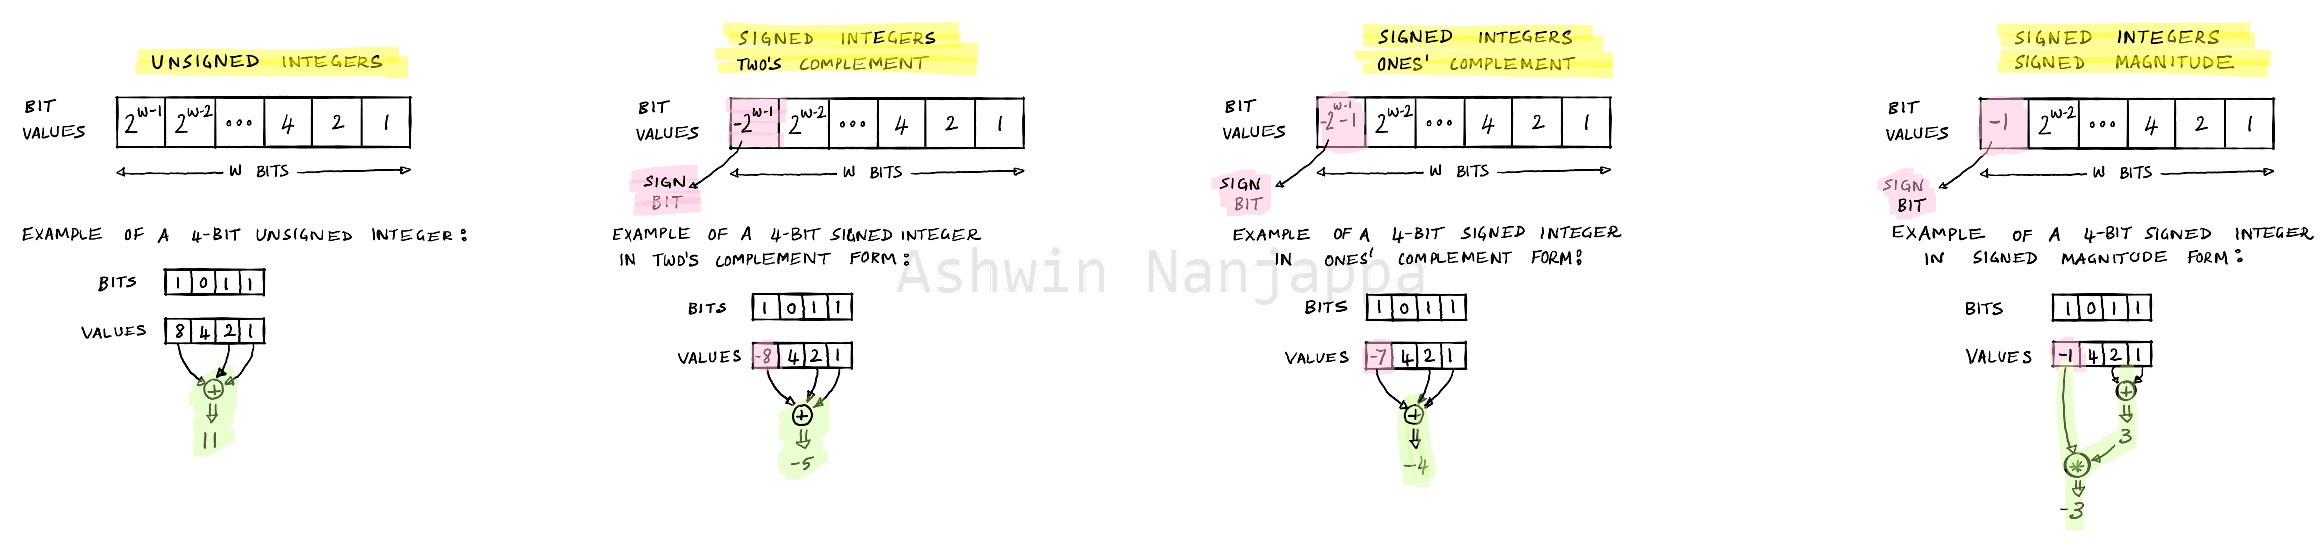 UNSIGNED INTEGERS
BIT VALUES
2^W-1 2^W-2 ... 4 2 1
W BITS
EXAMPLE OF A 4-BIT UNSIGNED INTEGER:
BITS 1 0 1 1
VALUES 8 4 2 1
+
11
SIGNED INTEGERS
TWO'S COMPLEMENT
BIT VALUES
-2^W-1 2^W-2 ... 4 2 1
SIGN BIT
W BITS
EXAMPLE OF A 4-BIT SIGNED INTEGER
IN TWO'S COMPLEMENT FORM:
BITS 1 0 1 1
VALUES -8 4 2 1
+
-5
SIGNED INTEGERS
ONES' COMPLEMENT
BIT VALUES
-2^W-1 -1 2^W-2 ... 4 2 1
SIGN BIT
W BITS
EXAMPLE OF A 4-BIT SIGNED INTEGER
IN ONES' COMPLEMENT FORM:
BITS 1 0 1 1
VALUES -7 4 2 1
+
-4
SIGNED INTEGERS
SIGNED MAGNITUDE
BIT VALUES
-1 2^W-2 ... 4 2 1
SIGN BIT
W BITS
EXAMPLE OF A 4-BIT SIGNED INTEGER
IN SIGNED MAGNITUDE FORM:
BITS 1 0 1 1
VALUES -1 4 2 1
+
3
*
-3
Ashwin Nanjappa